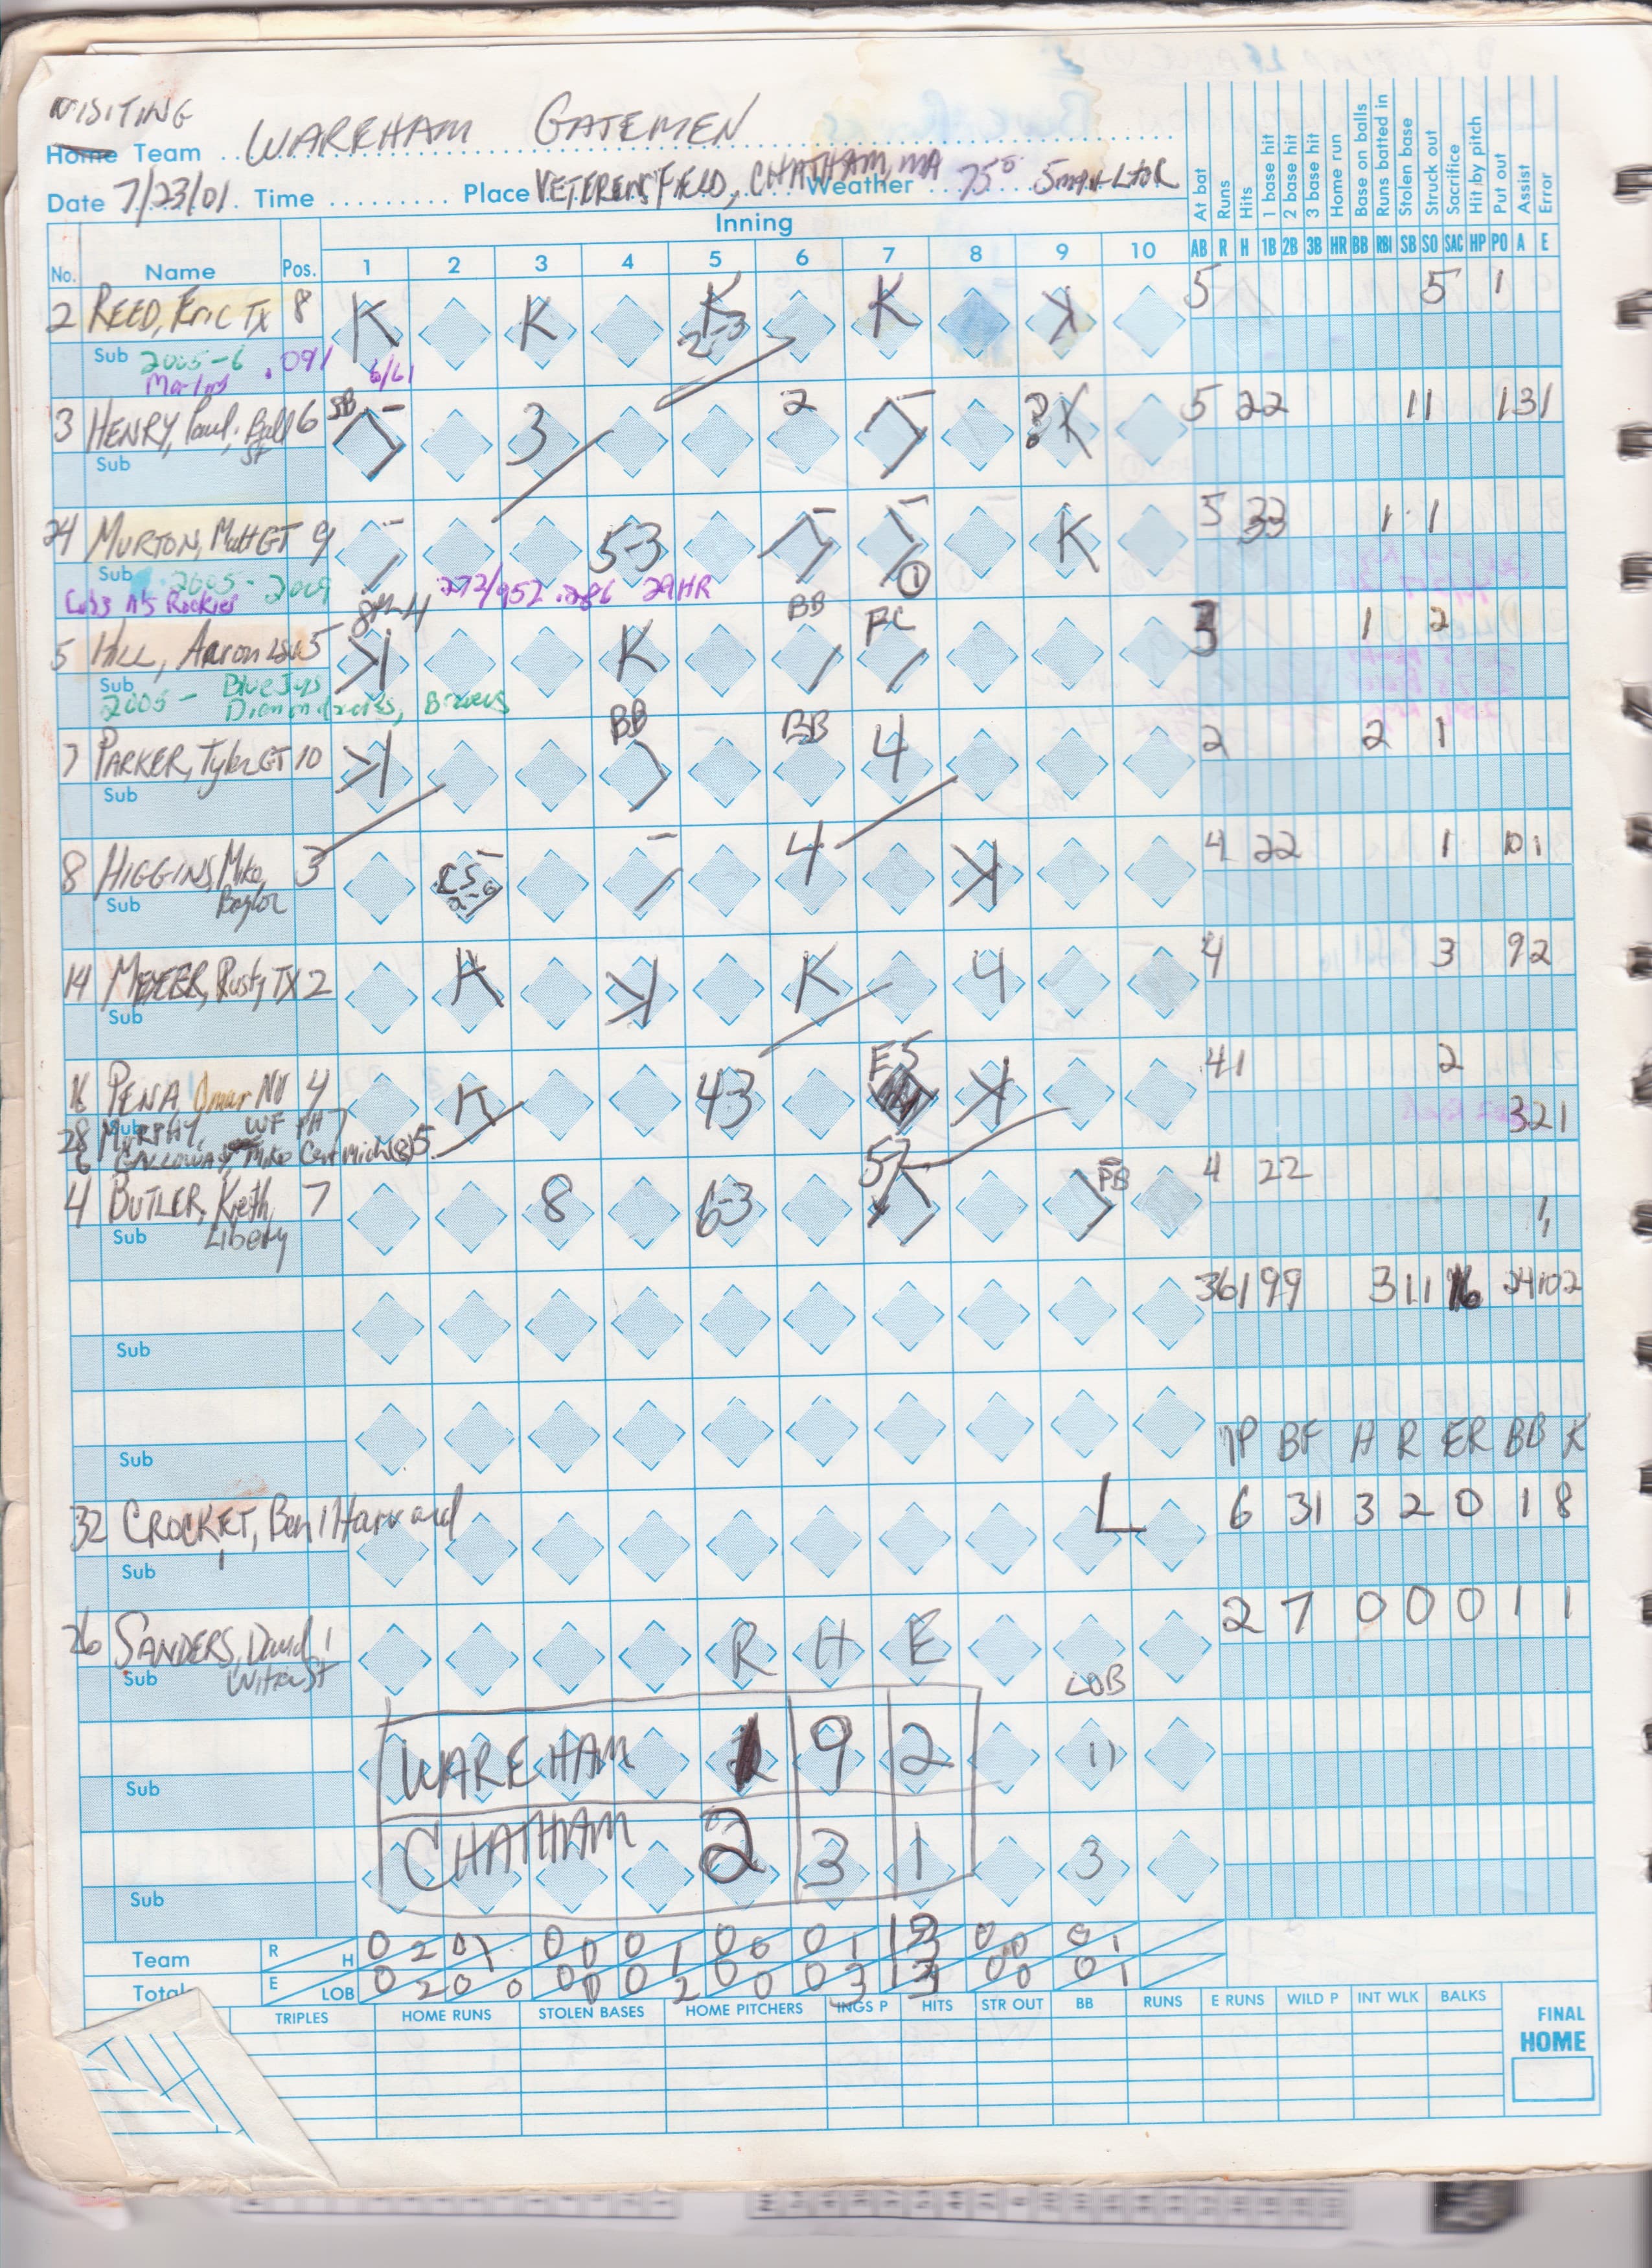 VISITING
Home Team WAREHAM GATEMEN
Date 7/23/01 Time Place VETERENS FIELD, CHATHAM, MA Weather 75° 5mph L to R
At bat Runs Hits 1 base hit 2 base hit 3 base hit Home run Base on balls Runs batted in Stolen base Struck out Sacrifice Hit by pitch Put out Assist Error
Inning
No. Name Pos. 1 2 3 4 5 6 7 8 9 10 AB R H 1B 2B 3B HR BB RBI SB SO SAC HP PO A E
2 REED, Eric TX 8 K K K 2-3 K K 5 5 1
Sub 2005-6 .091 6/61
Marlins
3 HENRY, Paul, Ball St 6 SB 3 2 K 5 2 2 1 1 1 3 1
Sub
24 MURTON, Matt GT 9 5-3 K 5 3 3 1 1
Sub 2005-2009 272/952 .286 29HR
Cubs A's Rockies 1
5 HILL, Aaron LSU 5 K K BB FC 3 1 2
Sub 2005 - Blue Jays
Diamondbacks, Braves
7 PARKER, Tyler GT 10 K BB BB 4 2 2 1
Sub
8 HIGGINS, Mike, 3 CS 4 K 4 2 2 1 10 1
Sub Baylor
14 MEYER, Rusty TX 2 K K K 4 4 3 9 2
Sub
16 PENA, Omar NV 4 K 43 E5 K 4 1 2
Sub
28 MURPHY, WF PH 7 3 2 1
6 GALLOWAY, Mike Cent Mich (8) 5
4 BUTLER, Kieth 7 8 6-3 57 PB 4 2 2
Sub Liberty 1
36 1 9 9 3 1 1 16 24 10 2
Sub
Sub
IP BF H R ER BB K
32 CROCKET, Ben 1 Harvard L 6 31 3 2 0 1 8
Sub
26 SANDERS, David 1 R H E 2 7 0 0 0 1 1
Sub Wichita St LOB
WAREHAM 1 9 2 11
Sub
CHATHAM 2 3 1 3
Sub
Team R H 0 2 0 1 0 0 0 1 0 0 0 1 1 3 0 0 0 1
Total E LOB 0 2 0 0 0 0 0 2 0 0 0 3 1 3 0 0 0 1
TRIPLES HOME RUNS STOLEN BASES HOME PITCHERS INGS P HITS STR OUT BB RUNS E RUNS WILD P INT WLK BALKS
FINAL
HOME